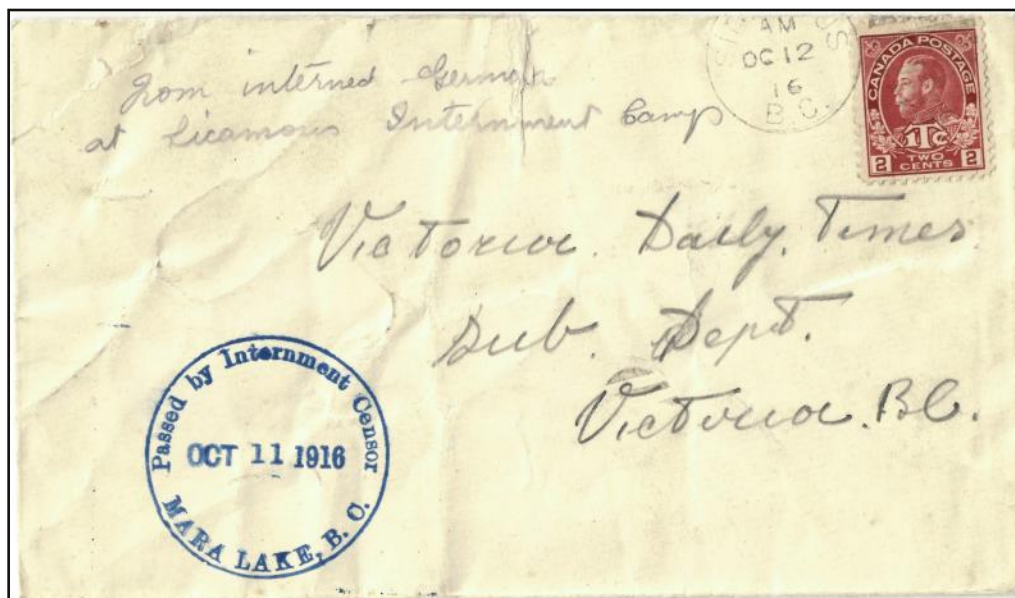 From interned German
at Sicamous Internment Camp
AM
OC 12
16
B.C.
CANADA POSTAGE
1Tc
2 TWO CENTS 2
Victoria. Daily. Times
Sub. Dept.
Victoria. B.C.
Passed by Internment Censor
OCT 11 1916
MARA LAKE, B. C.